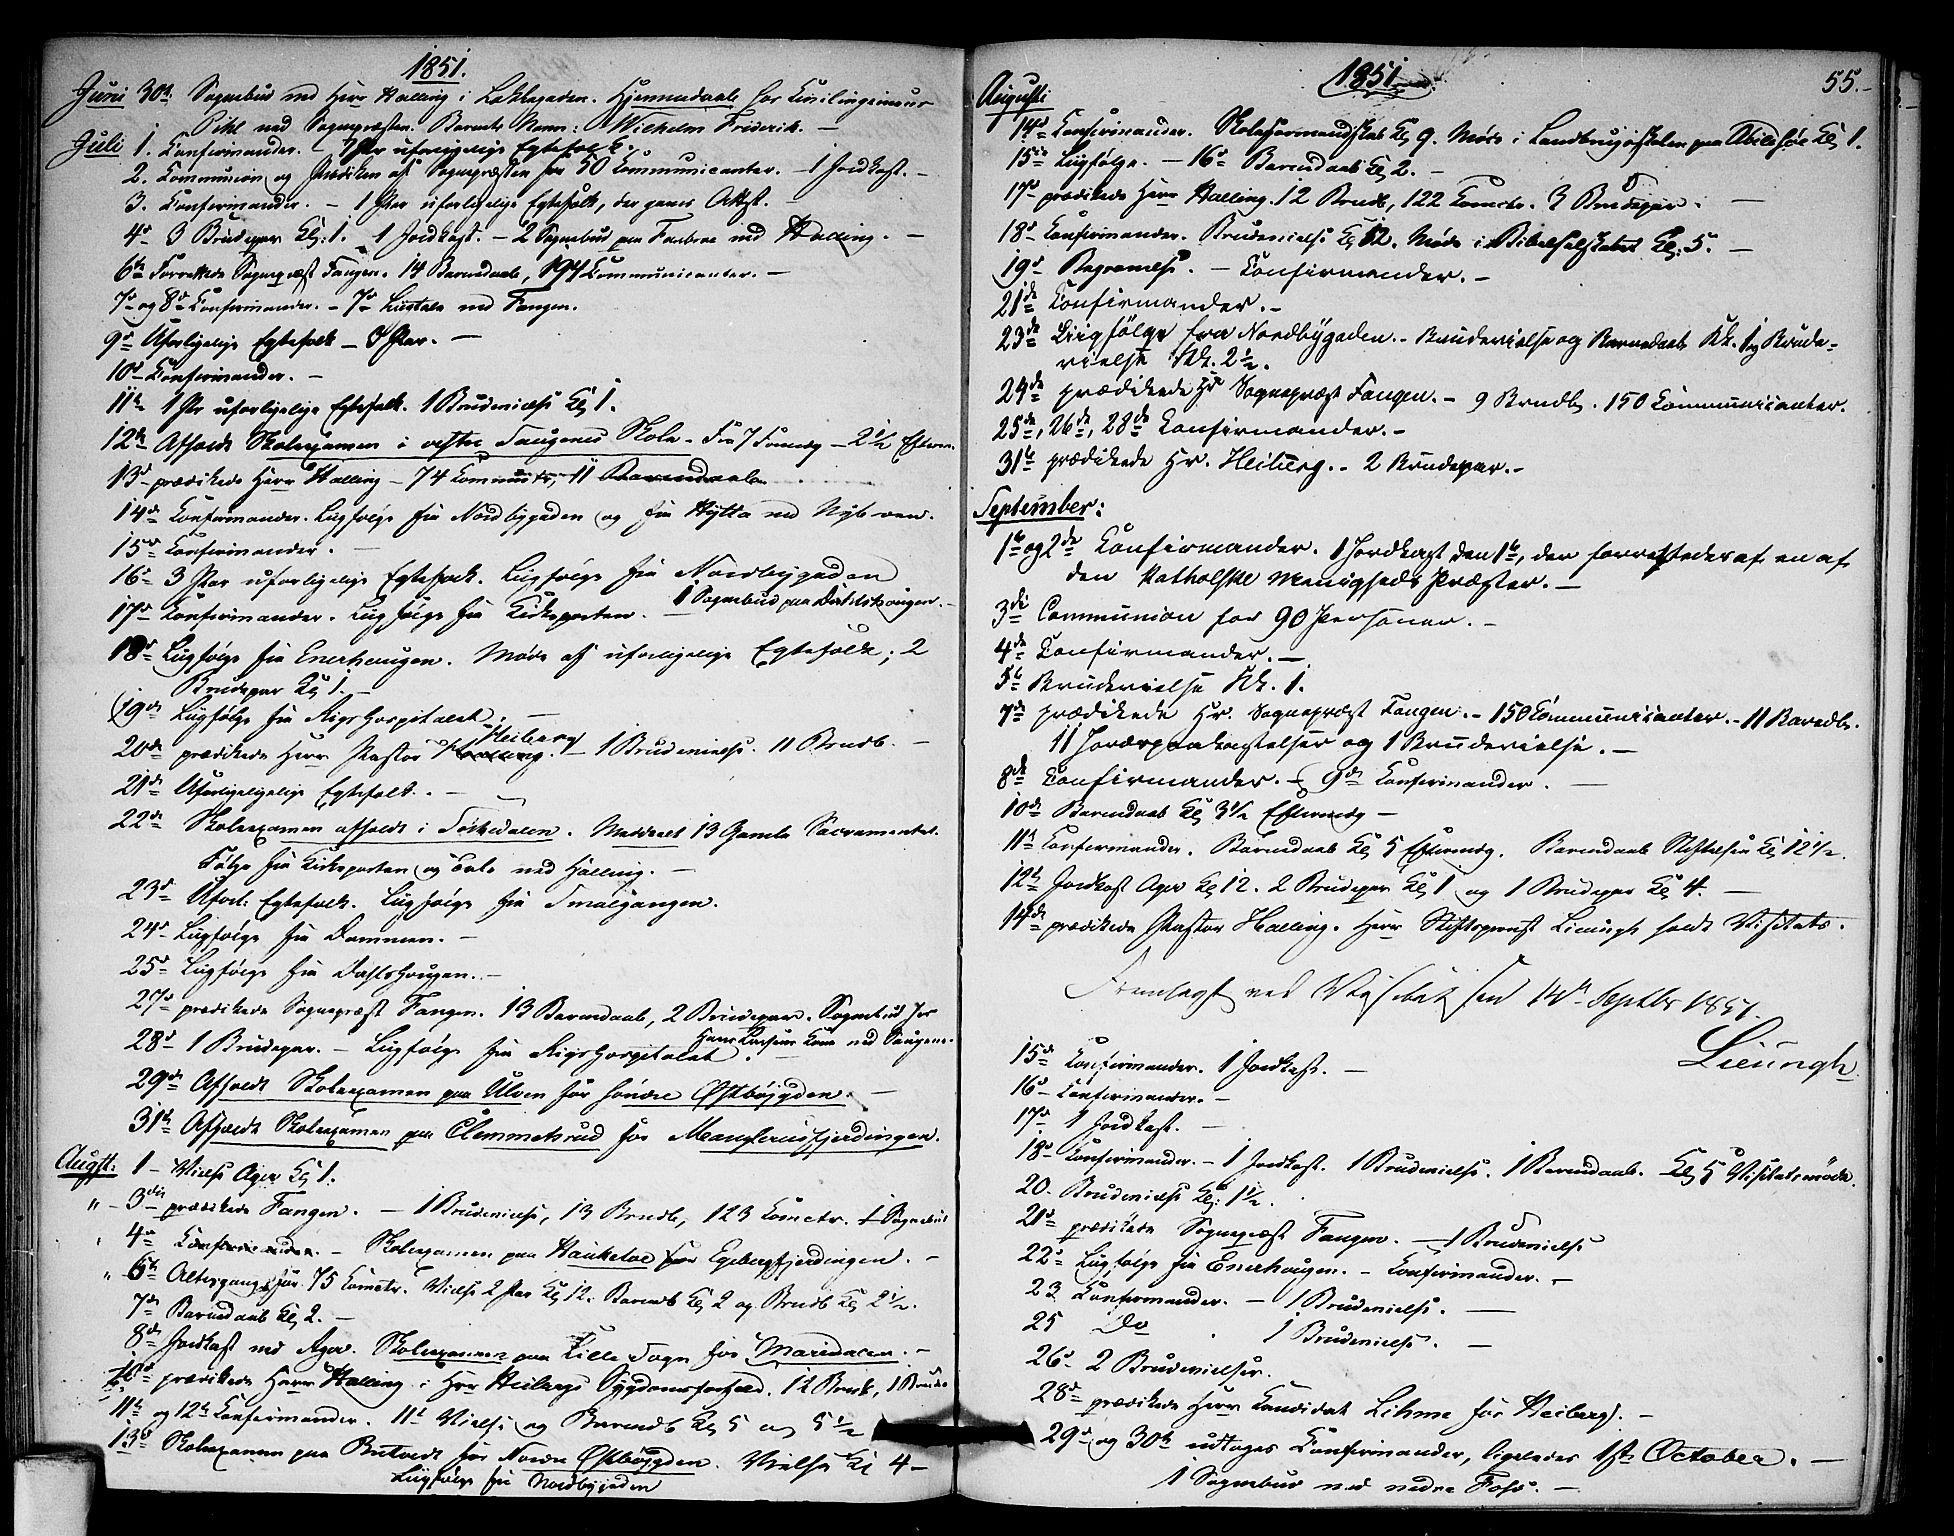 1851.
Juni 30te Sognebud ved Herr Halling i Lakkegaden. Hjemmedaab hos Civilingenieur
Pihl ved Sognepræsten. Barnets Navn: Wilhelm Friderik. —
Juli 1. Confirmander. 1 Par uforligelige Egtefolk.
2. Communion og Prædiken af Sognepræsten for 50 Communicanter. — 1 Jordkast. —
3. Confirmander. — 1 Par uforligelige Egtefolk, der gaves Attest.
4de 3 Brudepar Kl: 1. 1 Jordkast. — 2 Sognebud paa ved Halling. —
6te Forrettede Sognepræst Fangen. 14 Barnedaab, 194 Communicanter. —
7de og 8de Confirmander. — 7de Liigtale ved Fangen.
9de Uforligelige Egtefolk — 3 Par. —
10de Confirmander. —
11te 1 Par uforligelige Egtefolk. 1 Brudevielse Kl 1.
12te Afholdt Skoleexamen i østre Tangens Skole. Fra 7 Formdg — 2 1/2 Efterm.
13de prædikede Herr Halling — 74 Communic:, 11 Barnedaab.
14de Confirmander. Liigfølge fra Nordbygaden og fra Hytta ved
15de Confirmander. —
16de 3 Par uforligelige Egtefolk. Liigfølge fra Nordbygaden
17de Confirmander. Liigfølge fra Kirkeporten. — 1 Sognebud paa Dahlshougen. —
18de Liigfølge fra Enerhaugen. Møde af uforligelige Egtefolk; 2
Brudepar Kl 1. —
19de Liigfølge fra Rigshospitalet. —
20de prædikede Herr Pastor Halling Heiberg. — 1 Brudevielse. 11 Brndb. —
21de Uforligelige Egtefolk. —
22de Skoleexamen afholdt i Sørkedalen. Meddeelt 13 Gamle Sacramentet.
Følge fra Kirkeporten og Tale ved Halling. —
23de Uforl: Egtefolk. Liigfølge fra Smalgangen.
24de Liigfølge fra Dammen. —
25de Liigfølge fra Dahlshougen. —
27de prædikede Sognepræst Fangen. 13 Barnedaab, 2 Brudepar. Sognebud hos
28de 1 Brudepar. — Liigfølge fra Rigshospitalet. Kone ved Tangene. —
29de Afholdt Skoleexamen paa Ulven for søndre Østbøygden. —
31te Afholdt Skoleexamen paa Clemmetsrud for Manglerudfjerdingen.
Augst: 1 — Vielse Ager Kl 1.
" — 3die prædikede Fangen. — 1 Brudevielse, 13 Brndb, 123 Comctr. 1 Sognebud
" 4de Confirmander. — Skoleexamen paa Hauketoe for Egebergfjerdingen. —
" 6te Altergang for 75 Comctr. Vielse 2 Par Kl 12. Barneb Kl 2 og Brndb Kl 2 1/2.
7de Barnedaab Kl 2. —
8de Jordkast ved Ager. Skoleexamen paa Lille Sogn for Maridalen. —
10de prædikede Herr Halling i Herr Heibergs Sygdomsforfald. 12 Brndb, 1 Brude
11te og 12te Confirmander. 11te Vielse og Barnedb Kl 5 og 5 1/2
13de Skoleexamen paa Bredtvedt for Nordre Østbøygden. Vielse Kl 4 —
Liigfølge fra Nordbygaden
1851
55. —
Augusti
14de Confirmander. Skoleformandskab Kl 9. Møde i Landbrugsskolen paa Abildsøe Kl 1.
15de Liigfølge. — 16de Barnedaab Kl 2. —
17de prædikede Herr Halling. 12 Brndb, 122 Comctr. 3 Brudepar. —
18de Confirmander. Brudevielse Kl 12. Møde i Bibelselskabet Kl. 5. —
19de Begravelse. — Confirmander. —
21de Confirmander. —
23de Liigfølge fra Nordbygaden. — Brudevielse og Barnedaab Kl. 1 og Brude-
vielse Kl. 2 1/2.
24de prædikede Hr Sognepræst Fangen. — 9 Brndb. 150 Communicanter.
25de, 26de, 28de Confirmander. —
31te prædikede Hr. Heiberg. — 2 Brudepar. —
September:
1te og 2de Confirmander. 1 Jordkast den 1te, der forrettedes af en af
den katholske Menigheds Præster. —
3de Communion for 90 Personer. —
4de Confirmander. —
5te Brudevielse Kl. 1.
7de prædikede Hr. Sognepræst Fangen. — 150 Communicanter. — 11 Barndb.
11 Jordspaakastelser og 1 Brudevielse. —
8de Confirmander. — 9de Confirmander. —
10de Barnedaab Kl 3 1/2 Eftermdg —
11te Confirmander. Barnedaab Kl 5 Eftermdg. Barnedaab Stiftelsen Kl 12 1/2.
12te Jordkast Ager Kl 12. 2 Brudepar Kl 1 og 1 Brudepar Kl 4. —
14de prædikede Pastor Halling. Herr Stiftsprovst Lieungh holdt Visitats.
Fremlagt ved Visitatsen 14de Septbr 1851.
Lieungh.
15de Confirmander. 1 Jordkast. —
16de Confirmander. —
17de 1 Jordkast. —
18de Confirmander. — 1 Jordkast. 1 Brudevielse. 1 Barnedaab. Kl 5 Visitatsmøde.
20. Brudevielse Kl: 1 1/2.
21de prædikede Sognepræst Fangen. — 1 Brudevielse
22de Liigfølge fra Enerhaugen. — Confirmander. —
23 Confirmander. — 1 Brudevielse. —
25 Do 1 Brudevielse. —
26de 2 Brudevielser.
28de prædikede Herr Candidat Lihme for Heiberg. —
29de og 30te udtoges Confirmander, ligeledes 1ste October. —
1 Sognebud ved nedre Foss. —